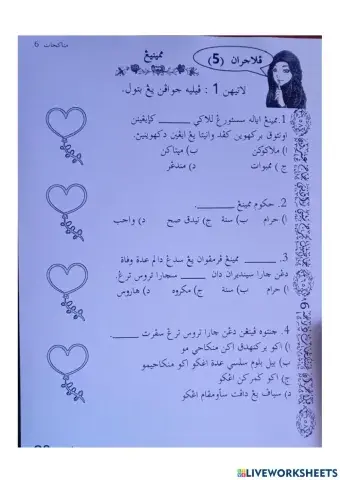 مناكحات 6
ڤلاجران (5)
ممينڠ
لاتيهن 1 : ڤيليه جواڤن يڠ بتول.
1. ممينڠ اياله سسئورڠ للاكي ______ كإيڠينن
اونتوق بركهوين كڤد وانيتا يڠ ايڠين دكهوينيڽ.
ا) ملاكوكن ب) ميتاكن
ج) ممبوات د) مندڠر
2. حكوم ممينڠ ______.
ا) حرام ب) سنة ج) تيدق صح د) واجب
3. ______ ممينڠ ڤرمڤوان يڠ سدڠ دالم عدة وفاة
دڠن چارا سينديران دان ______ سچارا تروس ترڠ.
ا) حرام ب) سنة ج) مكروه د) هاروس
4. چونتوه ڤينڠن دڠن چارا تروس ترڠ سڤرت ______.
ا) اكو بركهندق اكن منكاحي مو
ب) بيل بلوم سلسي عدة اڠكو اكو منكاحيمو
ج) اكو ڬمركن اڠكو
د) سياڤ يڠ داڤت ساومڤام اڠكو
LIVEWORKSHEETS